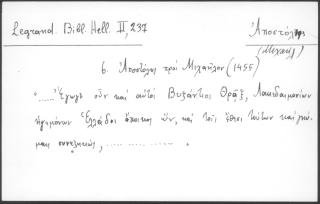 Legrand. Bibl. Hell. II, 237
Ἀποστόλης
(Μιχαήλ)
6. Ἀποστόλης πρὸς Μιχαῆλον (1455)
"......Ἔγωγε οὖν καὶ αὐτὸς Βυζάντιος Θρᾷξ, Λακεδαιμονίων
ἡγεμόνων Ἑλλάδος ἄποικος ὤν, καὶ τοῖς ἔθεσι τούτων καὶ νό-
μοις συνελκτώς, .................. "